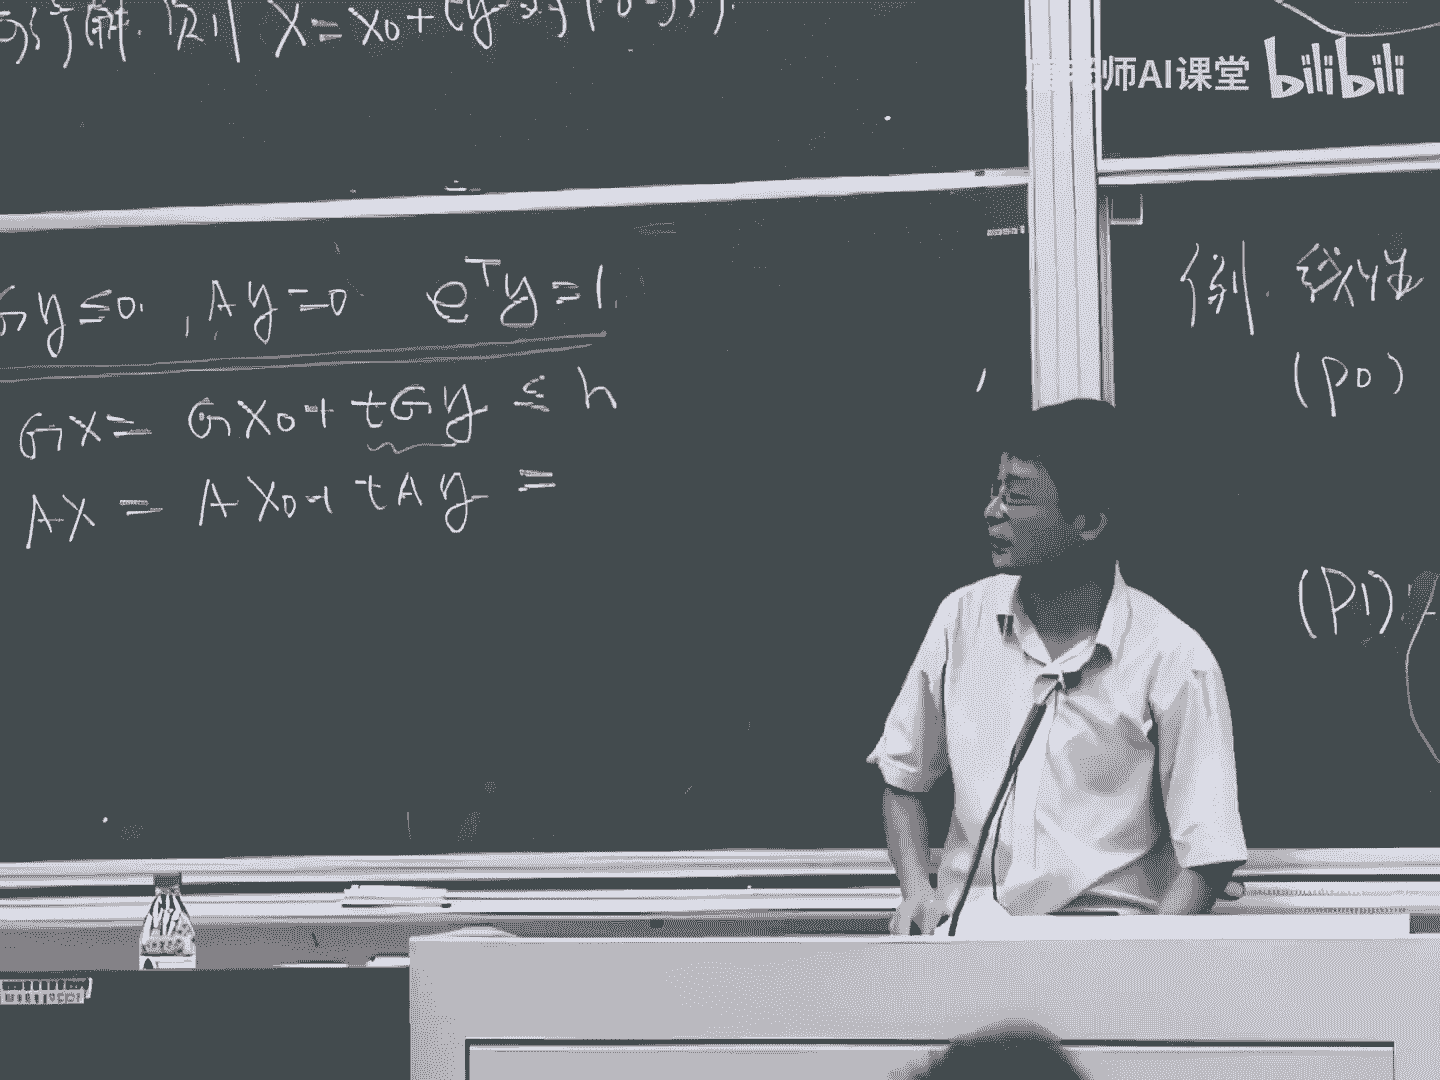 行解. 设 X = x0 + ty
师AI课堂 bilibili
Gy ≤ 0. , Ay = 0 e^T y = 1.
GX = GX0 + tGy ≤ h
AX = AX0 + tAy =
例. 线性
(P0)
(P1)